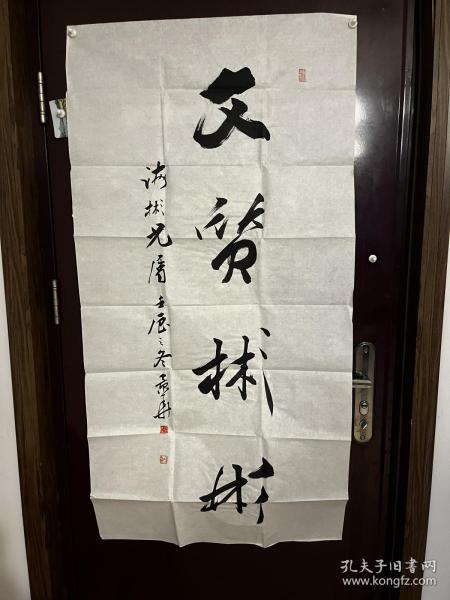 文质彬彬
海彬兄属 壬辰之冬
孔夫子旧书网
www.kongfz.com